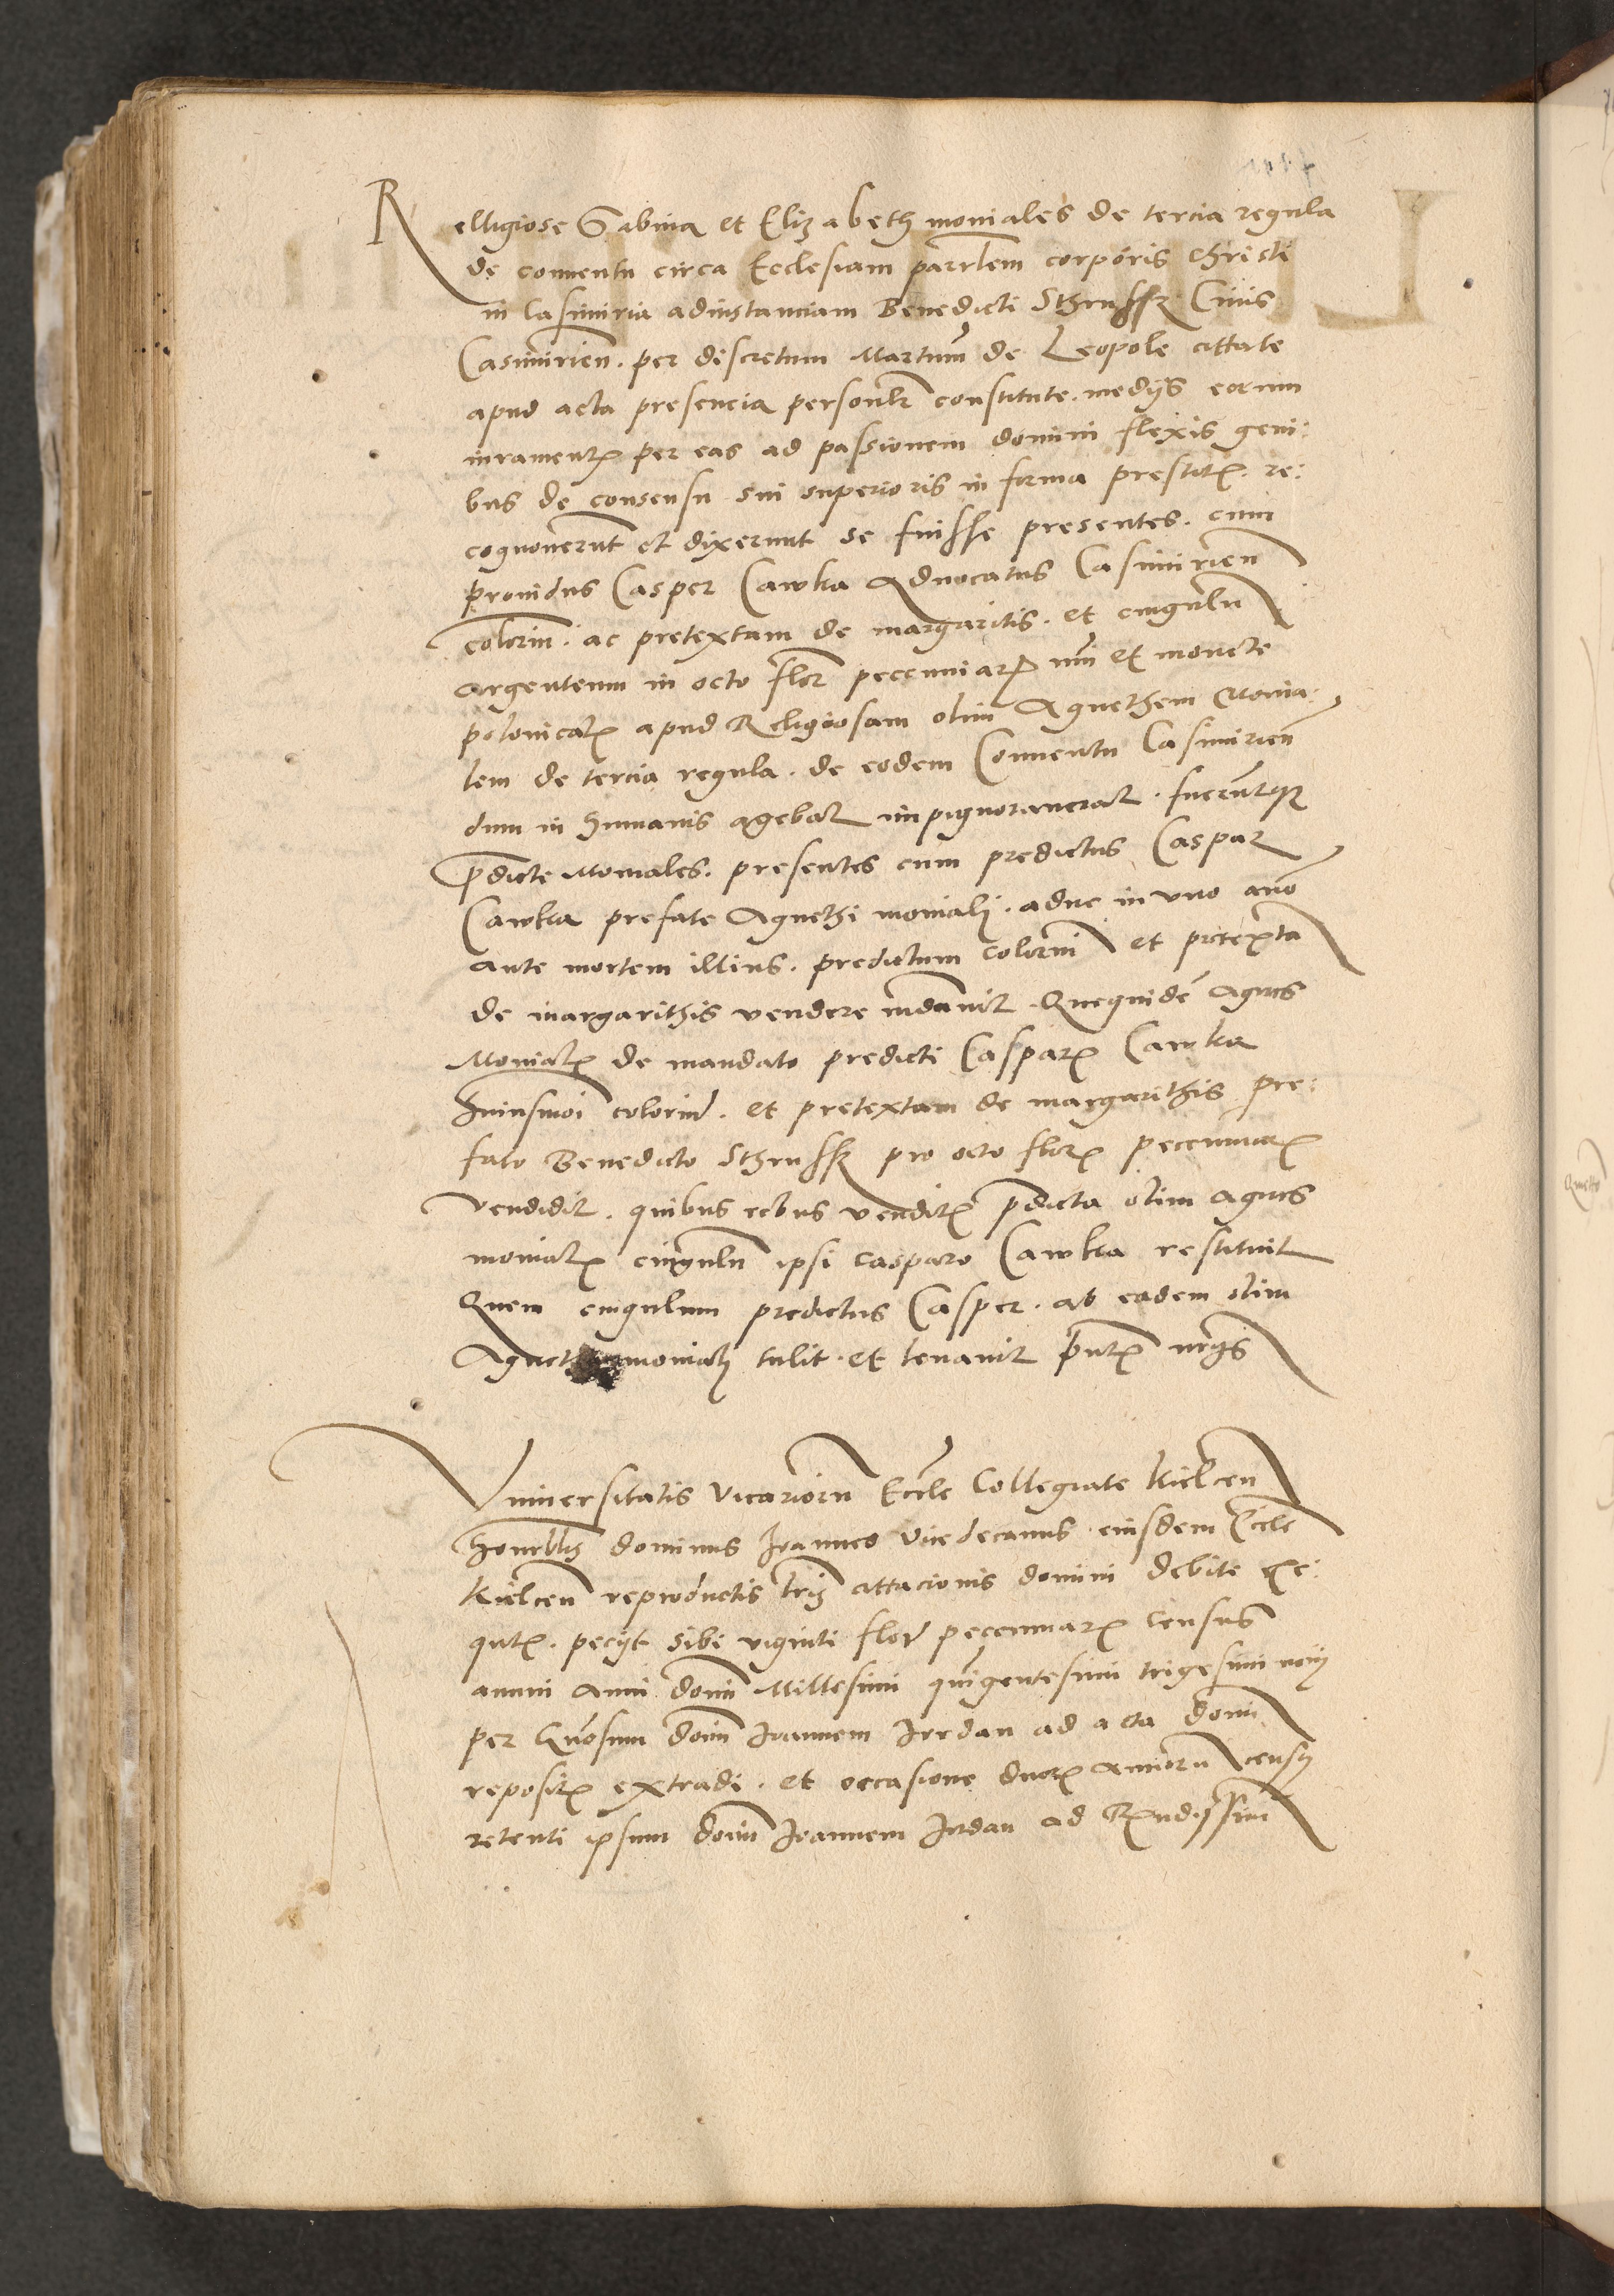 Relligiose Sabina et Elizabeth moniales de tercia regula
de conventu circa Ecclesiam parrlem corporis christi
in Casimiria ad instanciam Benedicti Sthrussk Civis
Casimirien. per discretum Martinum de Leopole cittate
apud acta presencia personlr constitute. medijs eorum
iuramentis per eas ad passionem domini flexis geni:
bus de consensu sui superioris in forma prestitis. re:
cognoverunt et dixerunt se fuisse presentes. cum
providus Casper Cawka Advocatus Casimirien
colerin. ac pretextam de margaritis. et cingulu
argenteum in octo flor pecuniar nui et monete
polonicalis apud Religiosam olim Agnethem Monia:
lem de tercia regula. de eodem Conventu Casimirien
dum in humanis agebat impignoraverat. fueruntque
pdicte Moniales. presentes cum predictus Caspar
Cawka prefate Agnethi moniali. aduc in uno ano
ante mortem illius. predictum colerin et pretexta
de margarithis vendere mdavit. Quequide Agnes
Monialis de mandato predicti Casparis Cawka
huiusmoi colerin. et pretextam de margarithis pre:
fato Benedicto Sthrussk pro octo floris pecuniaris
vendidit. quibus rebus venditis pdicta olim Agnes
monialis cingulu ipsi casparo Cawka restituit
Quem cingulum predictus Casper. ab eadem olim
moniali tulit. et levavit pntis
Universitatis Vicarioru Eccle Collegiate Kielcen
honrblis dominus Joannes Vicedecanus eiusdem Eccle
Kielcen reproductis lris cittacionis domini debite exe:
qutis. pecijt sibi viginti flor pecuniaris census
annui Anni domi Millesimi quingentesimi trigesimi noni
per Gnosum domi Joannem Jordan ad acta domi
repositis extradi. et occasione duoris annoru census
retenti ipsum domi Joannem Jordan ad Rndissim